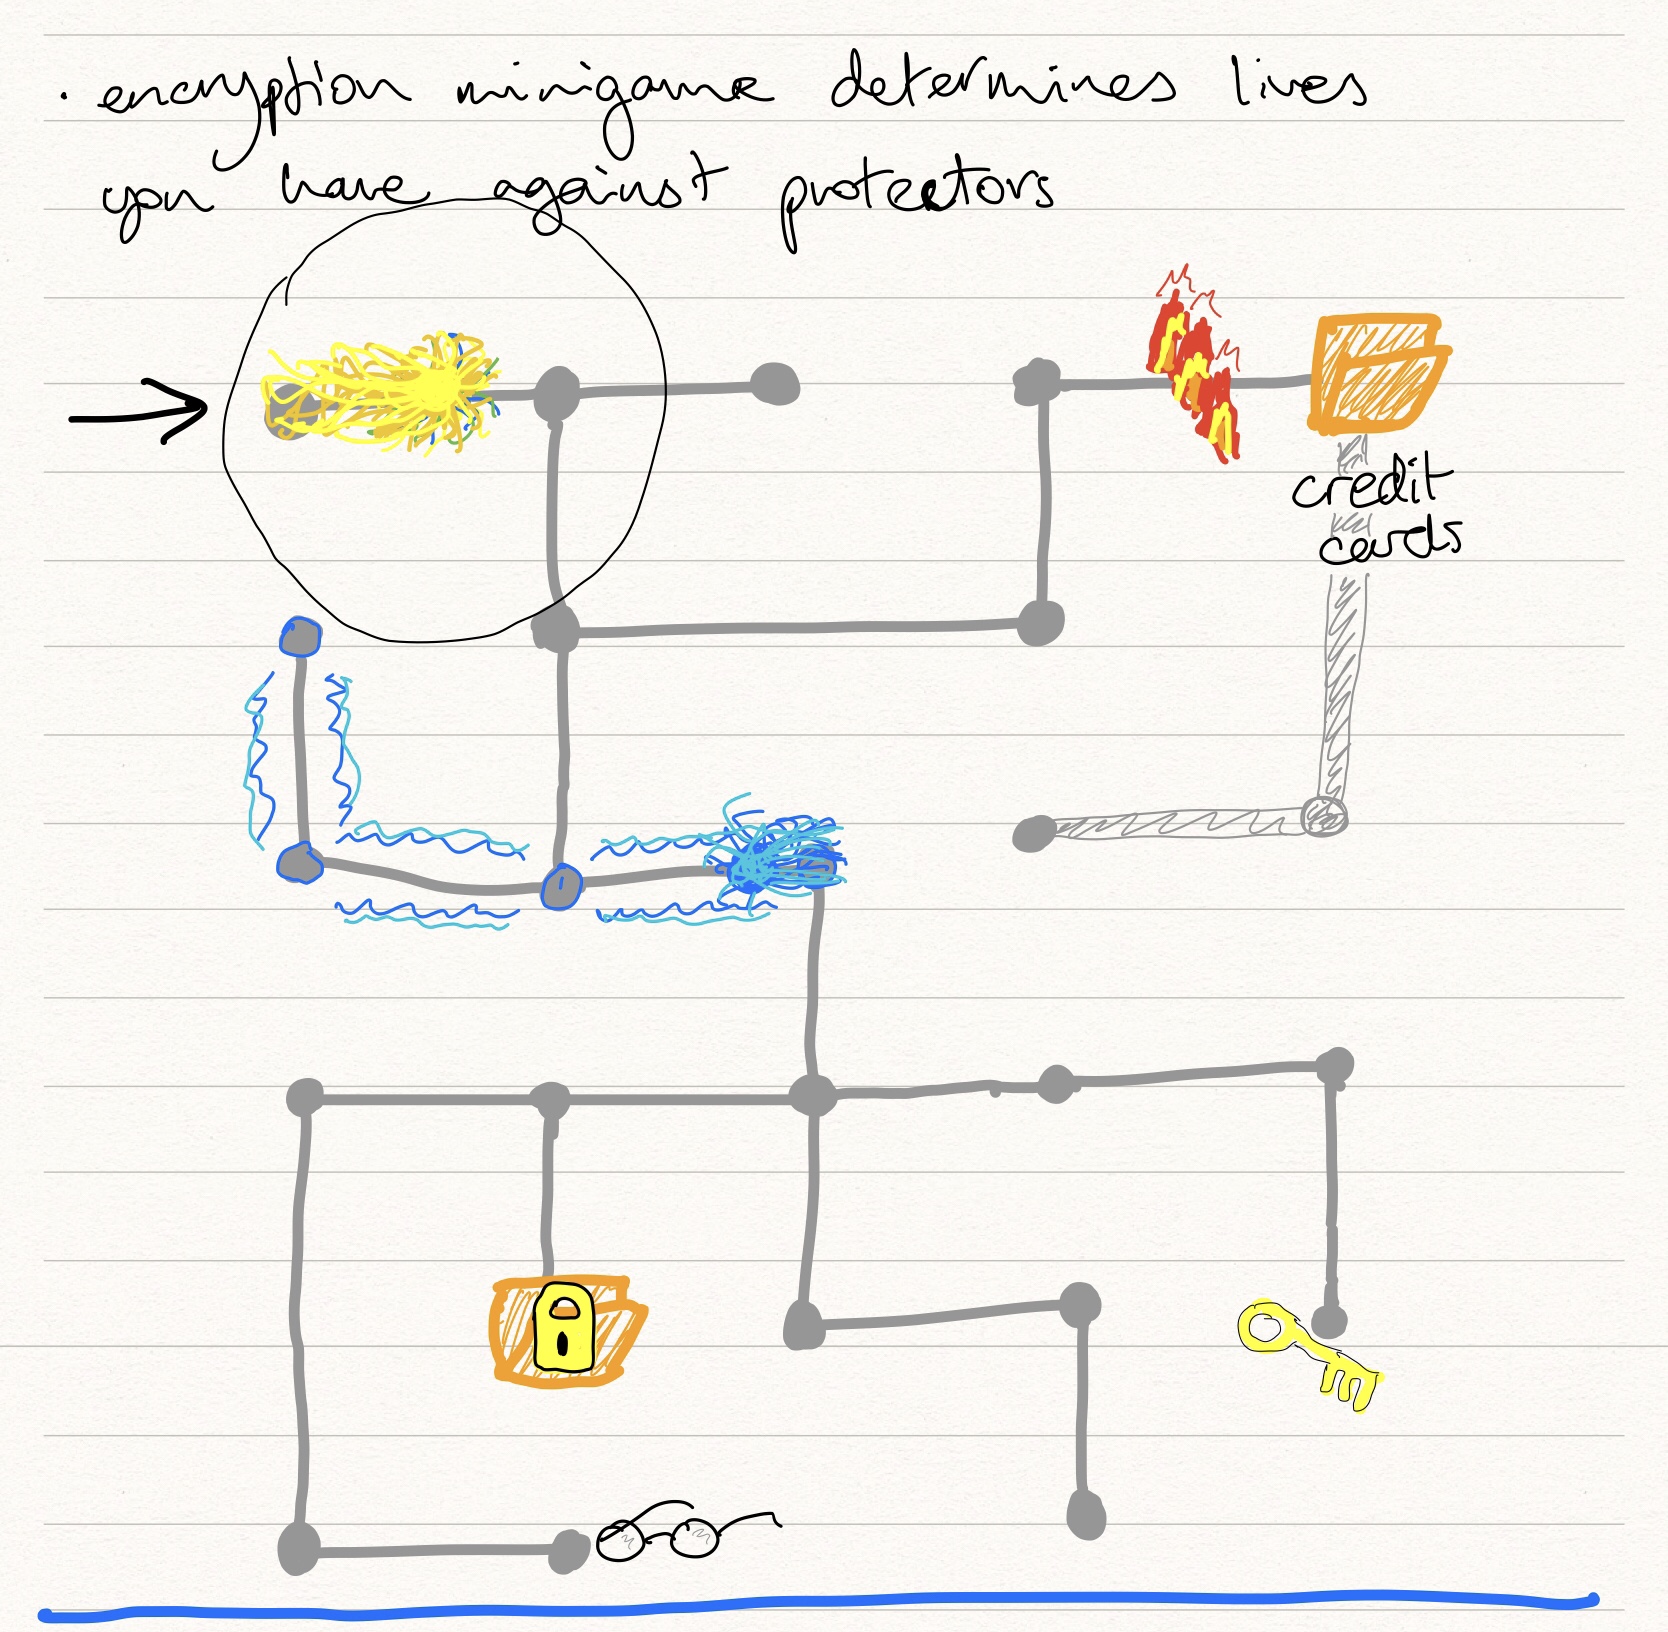 · encryption minigame determines lives
you have against protectors
credit
cards